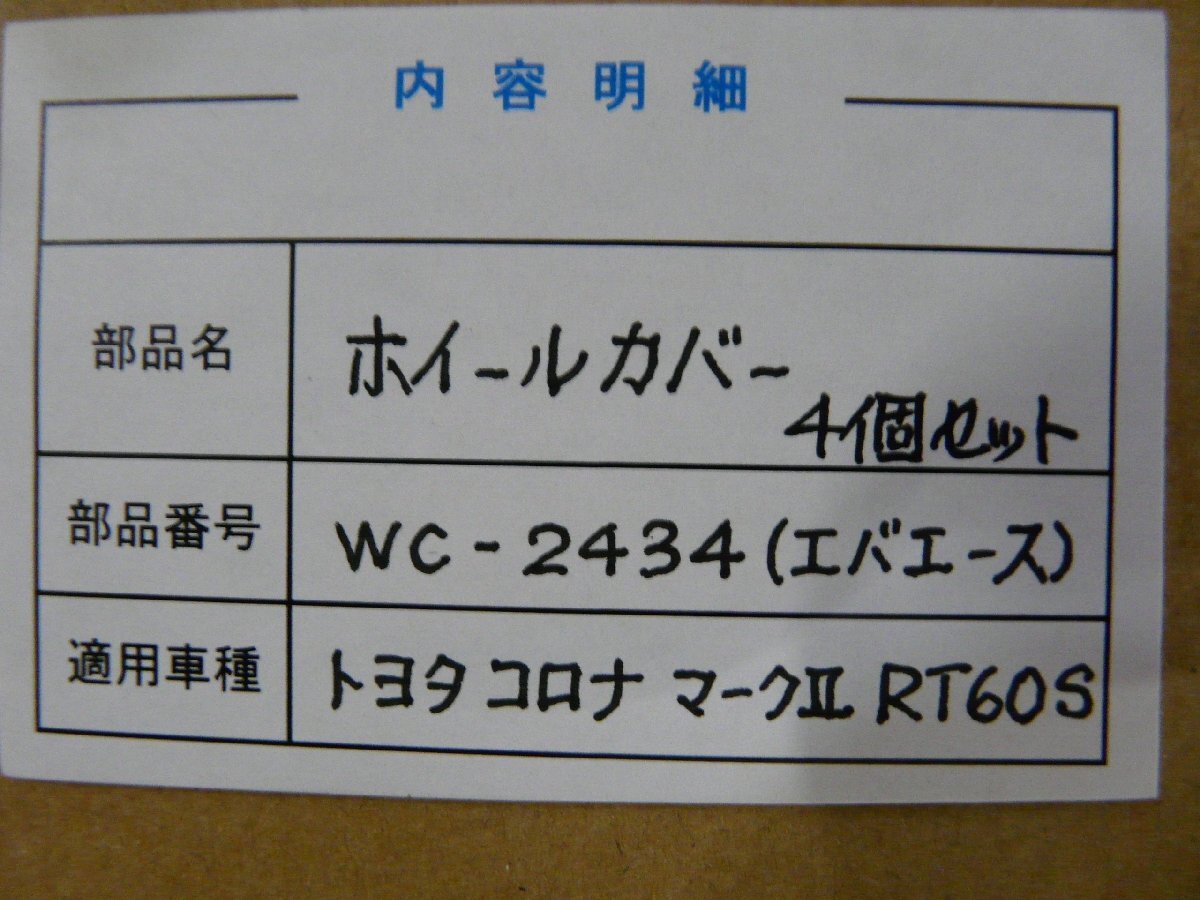 内容明細
部品名 ホイールカバー
4個セット
部品番号 WC-2434(エバエース)
適用車種 トヨタ コロナ マークⅡ RT60S